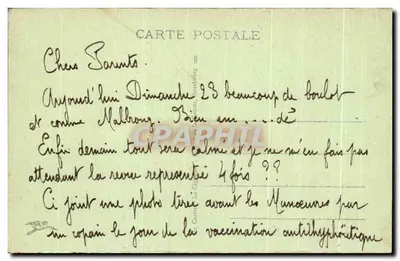 CARTE POSTALE
Chers Parents.
Aujourd'hui Dimanche 23 beaucoup de boulot
et comme Malbroug. Bien em....dé
CPARAMA
Enfin demain tout sera calme et je ne m'en fais pas
attendant la revue representée 4 fois ??
Ci joint une photo tirée avant les Manoeuvres par
un copain le jour de la vaccination antithyphoïdique